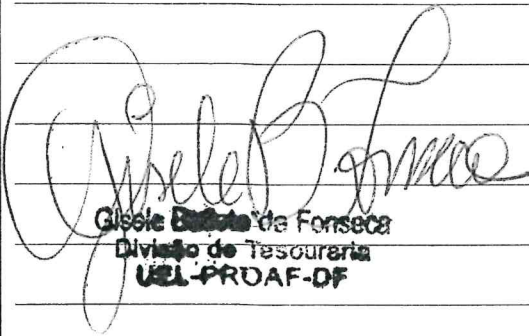 Gisele B Fonseca
Gisele Batista da Fonseca
Divisão de Tesouraria
UEL-PROAF-DF